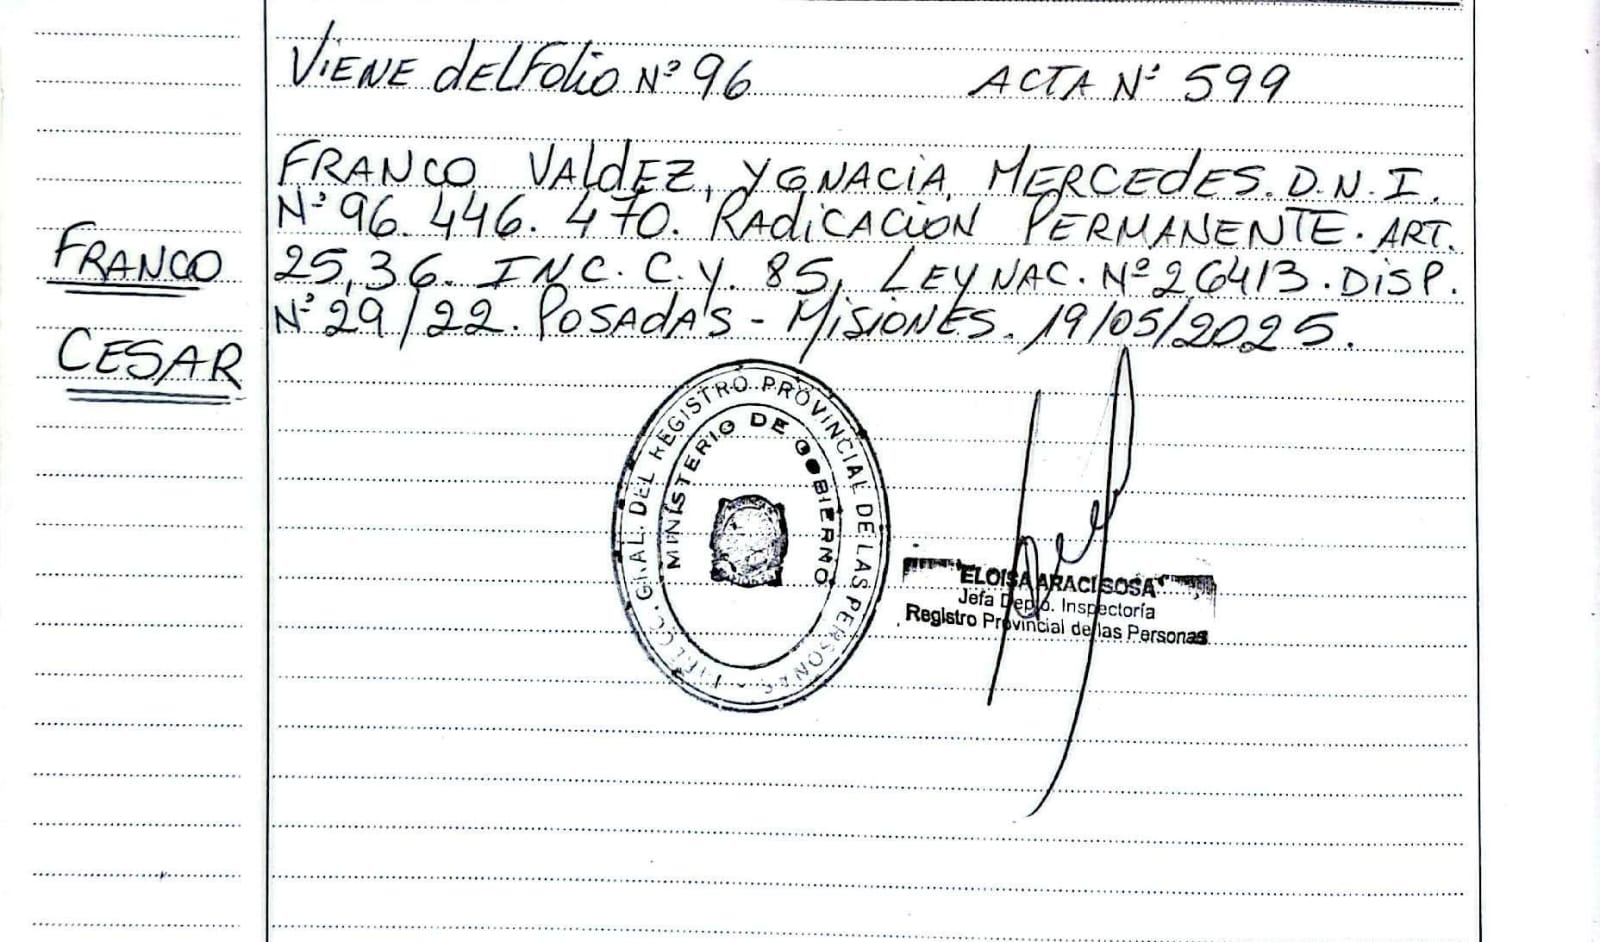 VIENE dELFOliO Nº 96 ACTA Nº 599
FRANCO VALdEZ, YGNACIA MERCEdES. D.N.I.
Nº 96.446.470. RADICACION PERMANENTE. ART.
25,36. INC. C.Y. 85, LEY NAC. Nº 26413. DISP.
Nº 29/22. POSAdAS - MISIONES. 19/05/2025.
FRANCO
CESAR
GRAL. DEL REGISTRO PROVINCIAL DE LAS PERSONAS
MINISTERIO DE GOBIERNO
ELOISA ARACI SOSA
Jefa Depto. Inspectoría
Registro Provincial de las Personas